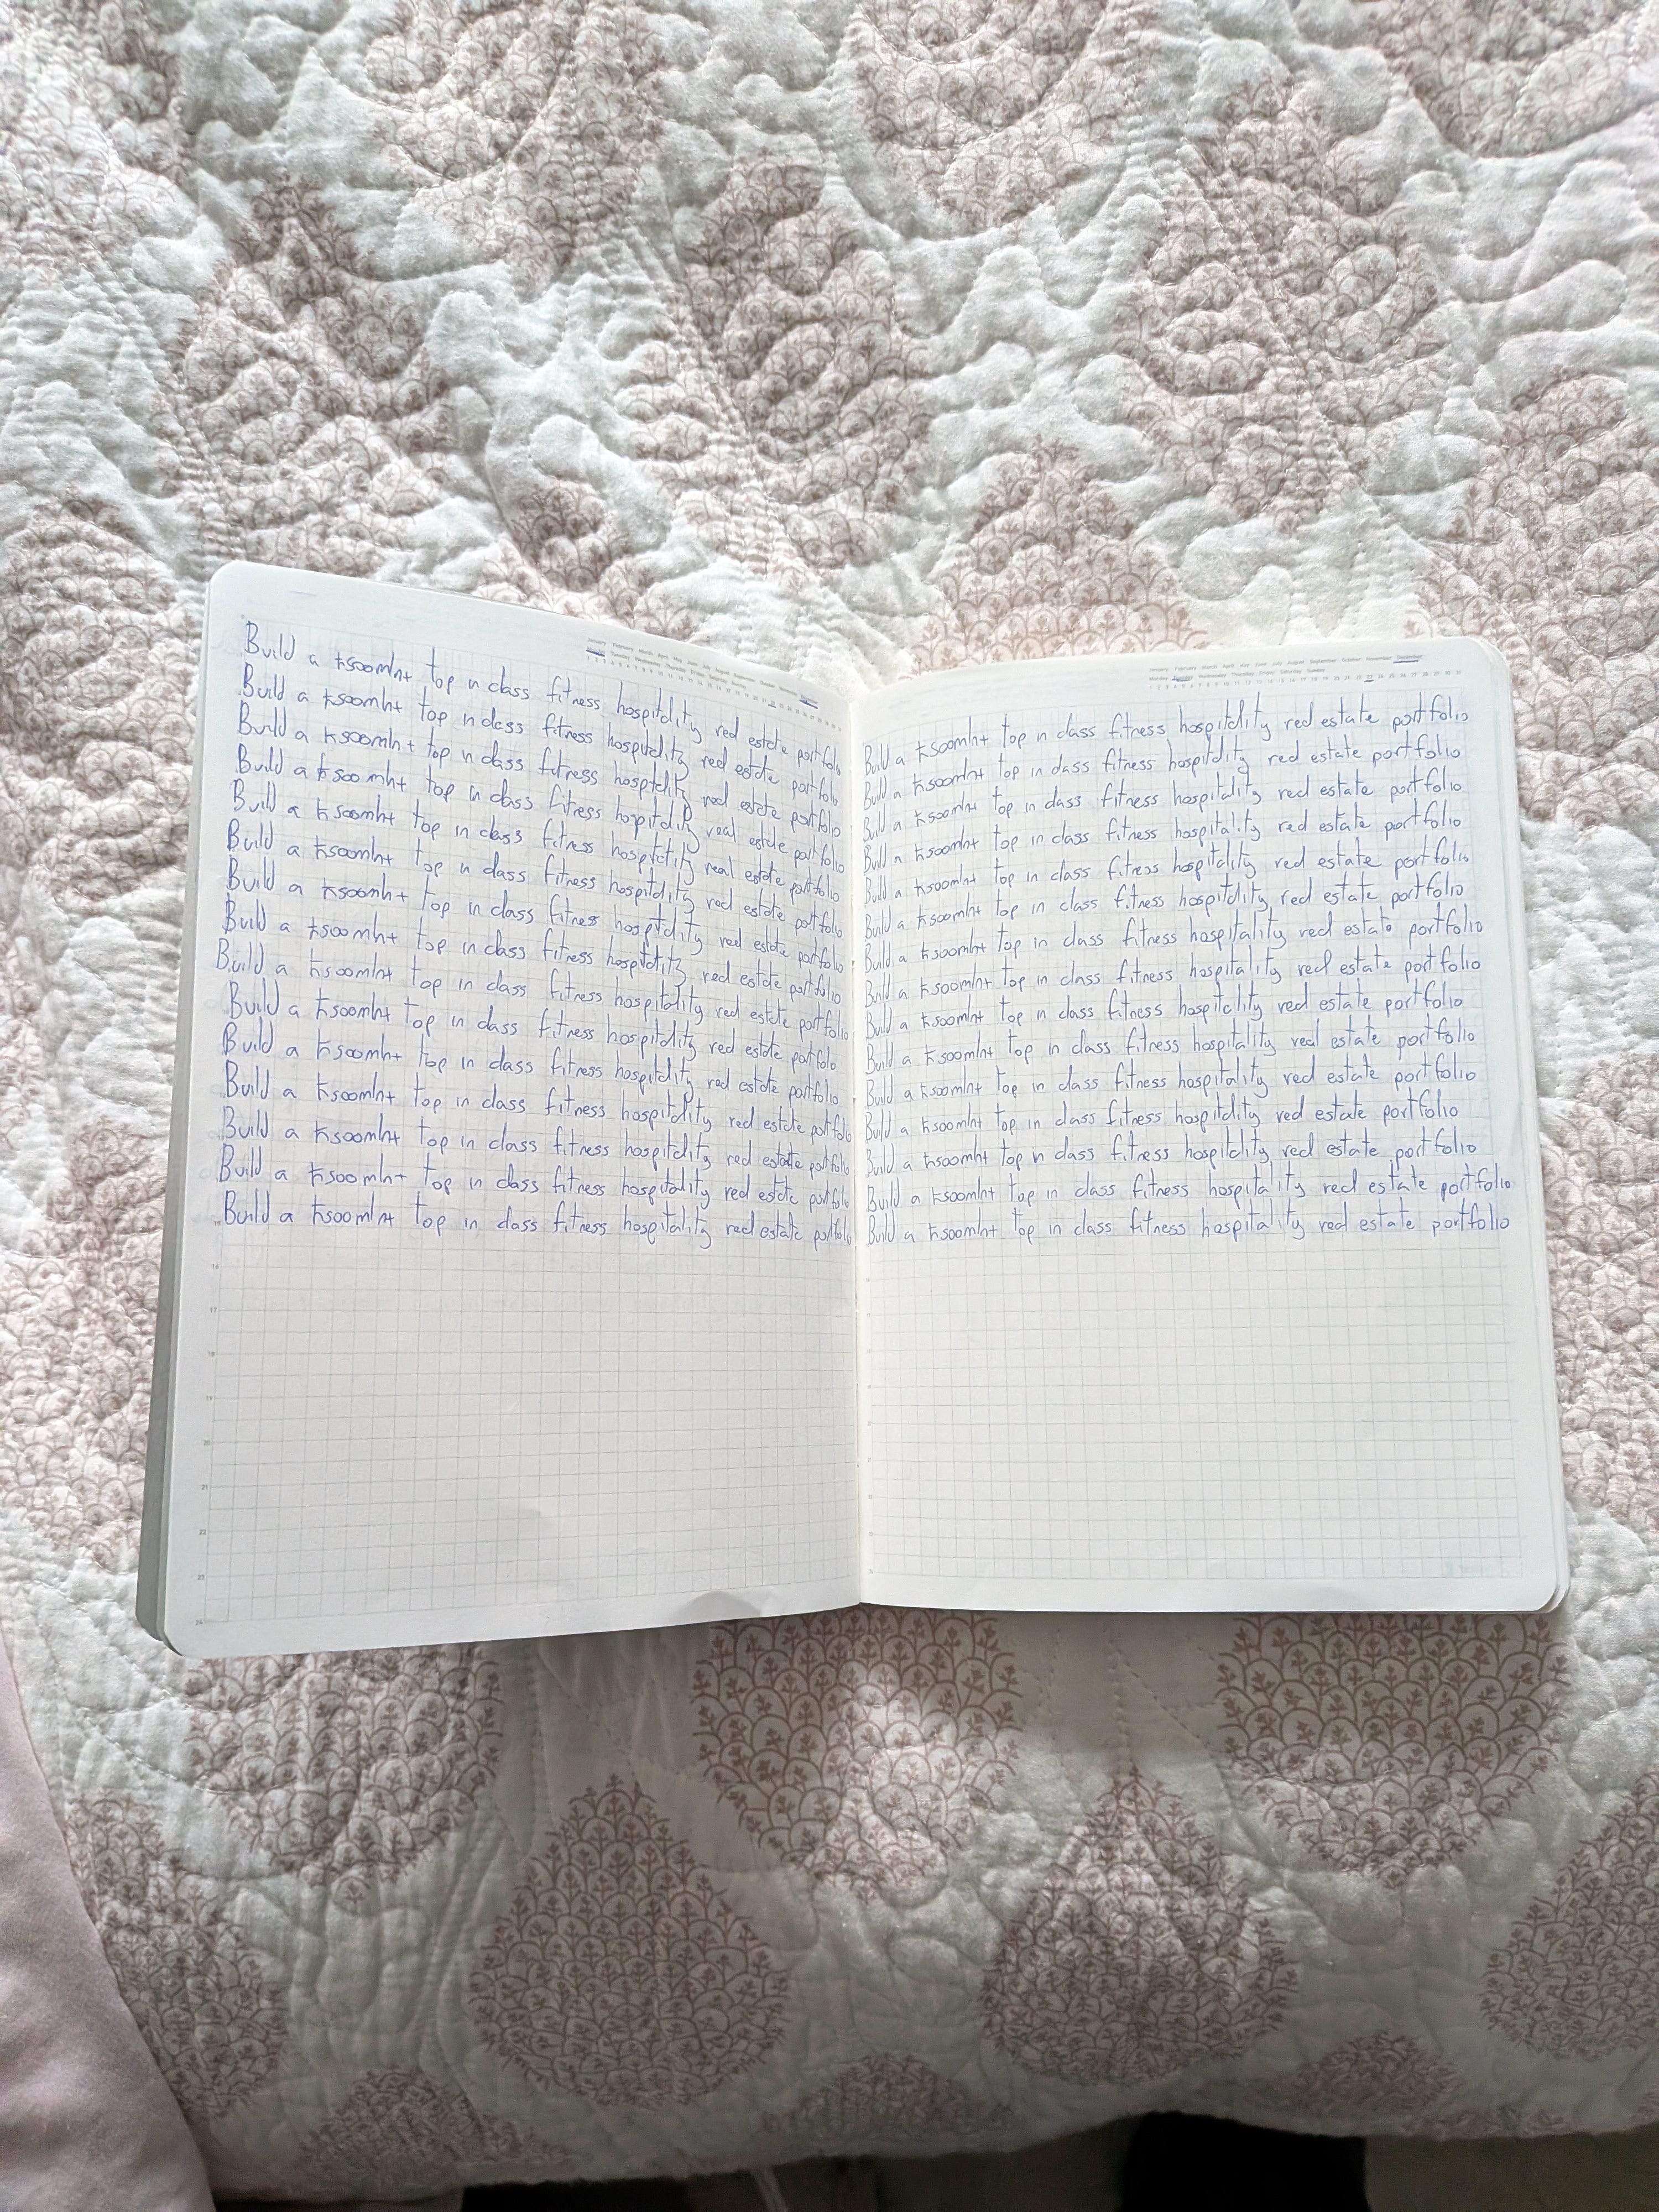 January February March April May June July August September October November December
Monday Tuesday Wednesday Thursday Friday Saturday Sunday
1 2 3 4 5 6 7 8 9 10 11 12 13 14 15 16 17 18 19 20 21 22 23 24 25 26 27 28 29 30 31
Build a £500mln+ top in class fitness hospitality real estate portfolio
Build a £500mln+ top in class fitness hospitality real estate portfolio
Build a £500mln+ top in class fitness hospitality real estate portfolio
Build a £500mln+ top in class fitness hospitality real estate portfolio
Build a £500mln+ top in class fitness hospitality real estate portfolio
Build a £500mln+ top in class fitness hospitality real estate portfolio
Build a £500mln+ top in class fitness hospitality real estate portfolio
Build a £500mln+ top in class fitness hospitality real estate portfolio
Build a £500mln+ top in class fitness hospitality real estate portfolio
Build a £500mln+ top in class fitness hospitality real estate portfolio
Build a £500mln+ top in class fitness hospitality real estate portfolio
Build a £500mln+ top in class fitness hospitality real estate portfolio
Build a £500mln+ top in class fitness hospitality real estate portfolio
Build a £500mln+ top in class fitness hospitality real estate portfolio
Build a £500mln+ top in class fitness hospitality real estate portfolio
16
17
18
19
20
21
22
23
24
January February March April May June July August September October November December
Monday Tuesday Wednesday Thursday Friday Saturday Sunday
1 2 3 4 5 6 7 8 9 10 11 12 13 14 15 16 17 18 19 20 21 22 23 24 25 26 27 28 29 30 31
Build a £500mln+ top in class fitness hospitality real estate portfolio
Build a £500mln+ top in class fitness hospitality real estate portfolio
Build a £500mln+ top in class fitness hospitality real estate portfolio
Build a £500mln+ top in class fitness hospitality real estate portfolio
Build a £500mln+ top in class fitness hospitality real estate portfolio
Build a £500mln+ top in class fitness hospitality real estate portfolio
Build a £500mln+ top in class fitness hospitality real estate portfolio
Build a £500mln+ top in class fitness hospitality real estate portfolio
Build a £500mln+ top in class fitness hospitality real estate portfolio
Build a £500mln+ top in class fitness hospitality real estate portfolio
Build a £500mln+ top in class fitness hospitality real estate portfolio
Build a £500mln+ top in class fitness hospitality real estate portfolio
Build a £500mln+ top in class fitness hospitality real estate portfolio
Build a £500mln+ top in class fitness hospitality real estate portfolio
Build a £500mln+ top in class fitness hospitality real estate portfolio